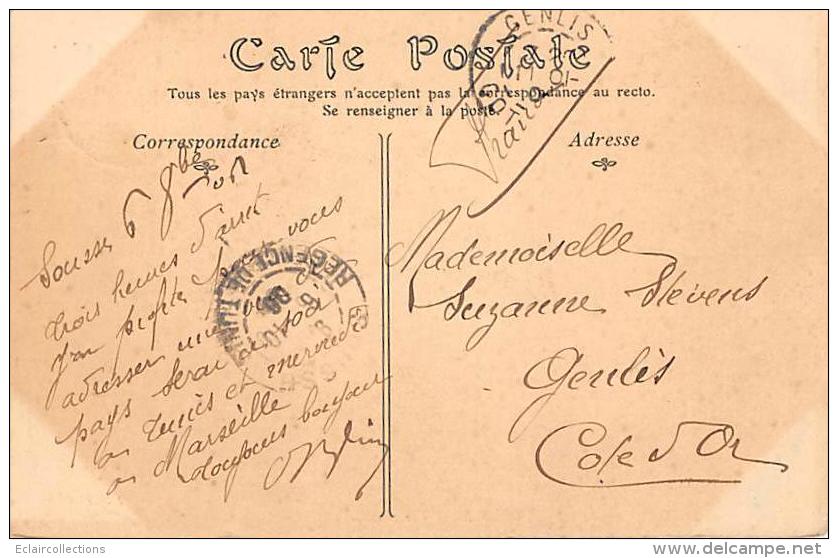 Carte Postale
Tous les pays étrangers n'acceptent pas la correspondance au recto.
Se renseigner à la poste.
Correspondance
Adresse
GENLIS
Sousse 6 8bre
trois heures d'arrêt
J'en profite pour vous
adresser une vue
pays serai ce soir
à Tunis et mercredi
à Marseille
toujours
REGENCE DE TUNIS
Mademoiselle
Suzanne Stevens
Genlis
Cote d'Or
Eclaircollections
www.delcampe.net